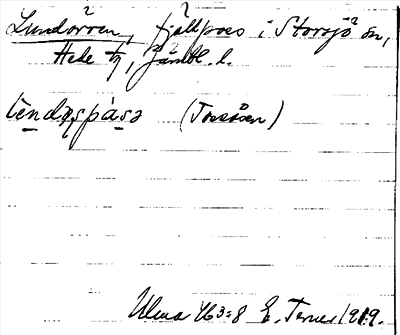 Lundörren, fjällpass i Storsjö sn,
Hede tg, Jämtl. l.
lendǫspàsə (Tossåsen)
Ulma 463:8 E. Terner 1919.